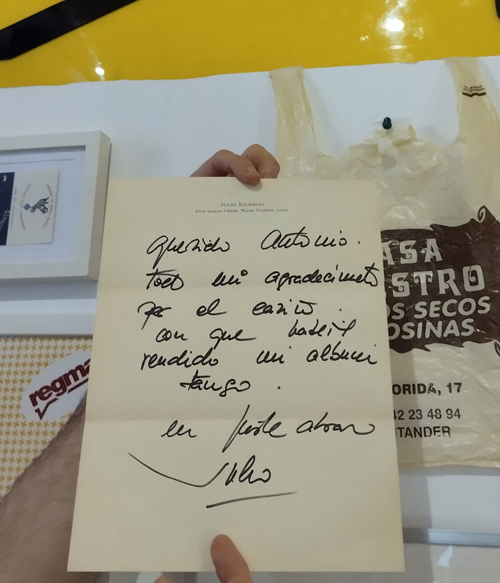 JULIO IGLESIAS
Querido Antonio.
todo mi agradecimiento
por el cariño
con que habeis
vendido mi album
tango.
un fuerte abrazo
Julio
regma
ASA
STRO
OS SECOS
OSINAS
ORIDA, 17
42 23 48 94
TANDER